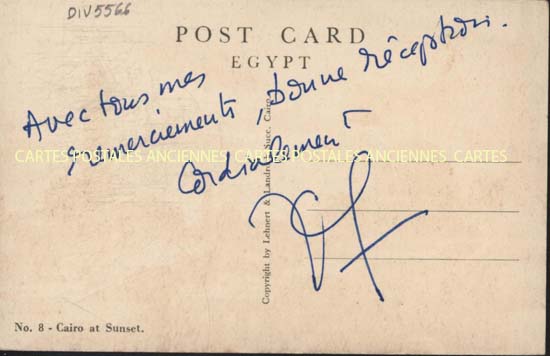 DIV5566
POST CARD
EGYPT
Avec tous mes
remerciements, bonne réception.
Cordialement
CARTES POSTALES ANCIENNES CARTES POSTALES ANCIENNES CARTES
Copyright by Lehnert & Landrock Succ. Cairo
No. 8 - Cairo at Sunset.